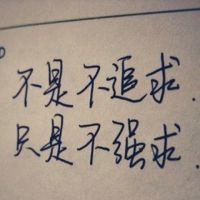 不是不追求.
只是不强求.